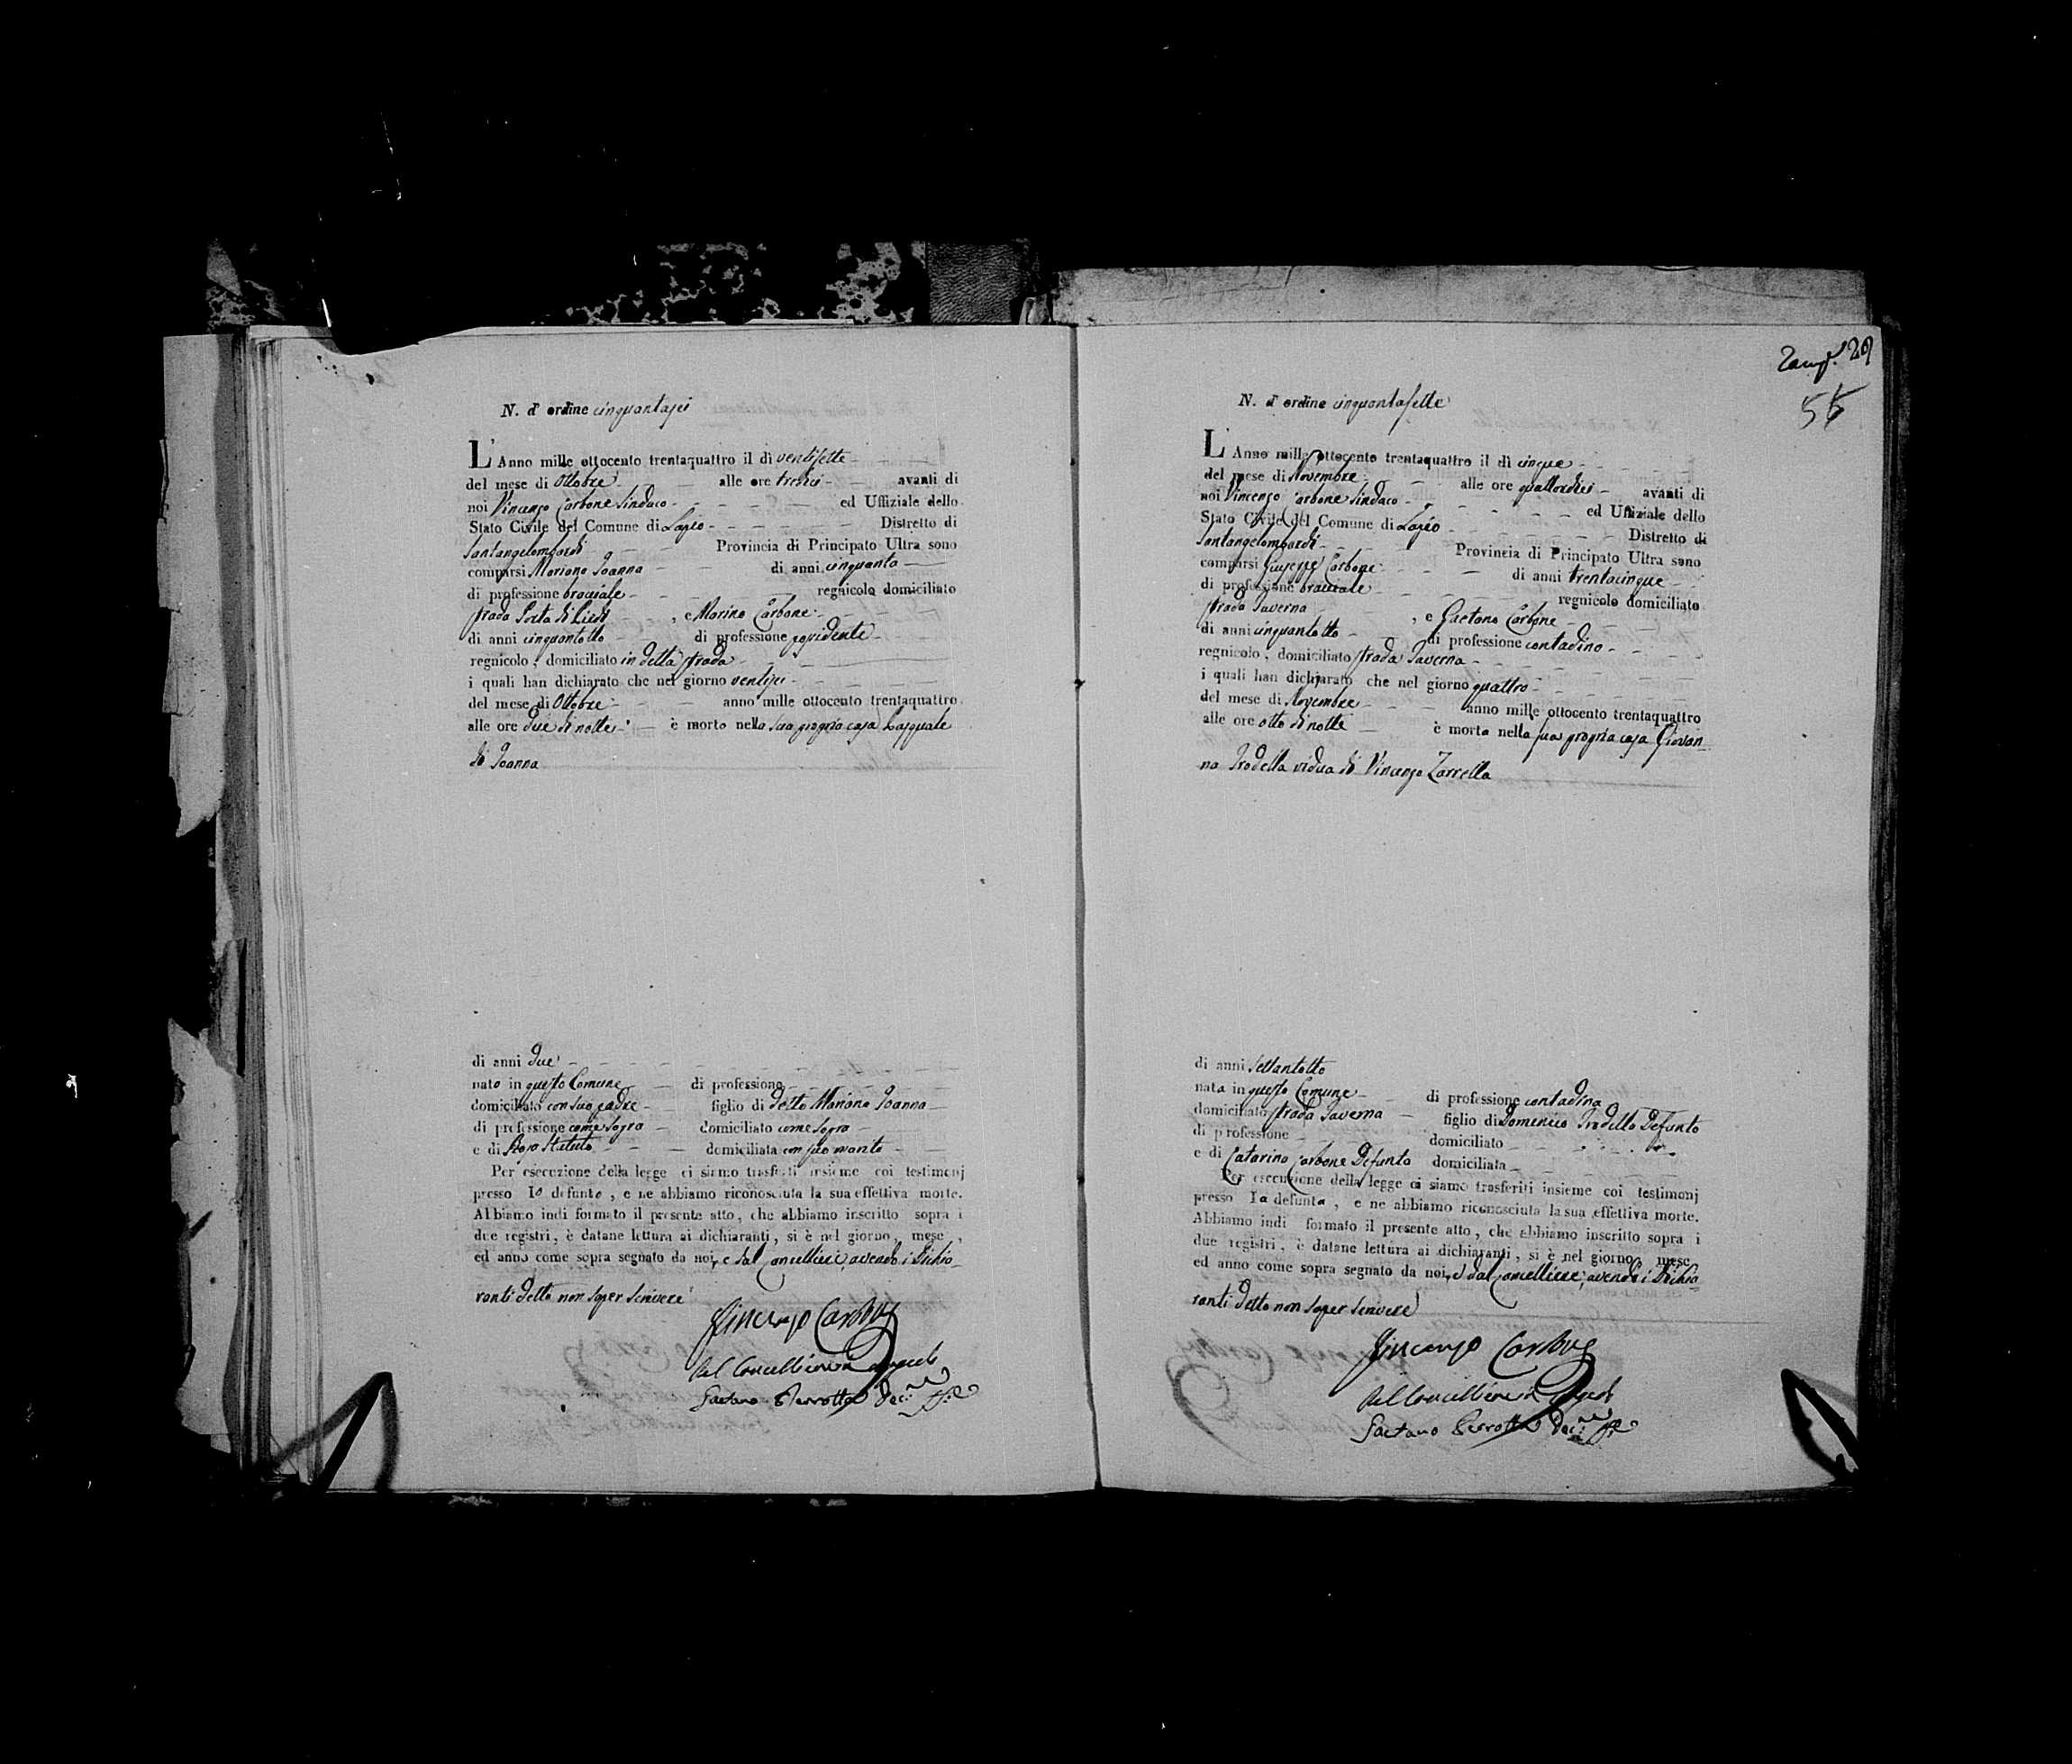 N. d' ordine cinquantasei
L' Anno mille ottocento trentaquattro il dì ventisette
del mese di Ottobre alle ore tredici avanti di
noi Vincenzo Carbone Sindaco ed Uffiziale dello
Stato Civile del Comune di Lapio Distretto di
Santangelombardi Provincia di Principato Ultra sono
comparsi Mariano Ioanna di anni cinquanta
di professione bracciale regnicolo domiciliato
strada Porta di Piedi , e Marino Carbone
di anni cinquantotto di professione possidente
regnicolo , domiciliato in detta strada
i quali han dichiarato che nel giorno ventisei
del mese di Ottobre anno mille ottocento trentaquattro
alle ore due di notte è morto nella sua propria casa Pasquale
di Ioanna
di anni due
nato in questo Comune di professione
domiciliato con suo padre figlio di detto Mariano Ioanna
di professione come sopra domiciliato come sopra
e di domiciliata con suo marito
Per esecuzione della legge ci siamo trasferiti insieme coi testimonj
presso lo defunto , e ne abbiamo riconosciuta la sua effettiva morte.
Abbiamo indi formato il presente atto, che abbiamo inscritto sopra i
due registri, è datane lettura ai dichiaranti, si è nel giorno, mese,
ed anno come sopra segnato da noi, e dal Cancelliere, avendo i dichia-
ranti detto non saper scrivere
Vincenzo Carbone
Pel Cancelliere
Gaetano Perrotta
Zamp. 29
55
N. d' ordine cinquantasette
L' Anno mille ottocento trentaquattro il dì cinque
del mese di Novembre alle ore quattordici avanti di
noi Vincenzo Carbone Sindaco ed Uffiziale dello
Stato Civile del Comune di Lapio Distretto di
Santangelombardi Provincia di Principato Ultra sono
comparsi Giuseppe Carbone di anni trentacinque
di professione bracciale regnicolo domiciliato
strada Taverna , e Gaetano Carbone
di anni cinquantotto di professione contadino
regnicolo , domiciliato strada Taverna
i quali han dichiarato che nel giorno quattro
del mese di Novembre anno mille ottocento trentaquattro
alle ore otto di notte è morta nella sua propria casa Giovan-
na Trodella vidua di Vincenzo Zarrella
di anni settantotto
nata in questo Comune di professione contadina
domiciliato strada Taverna figlio di Domenico Trodella Defunto
di professione domiciliato
e di Catarina Carbone Defunta domiciliata
Per esecuzione della legge ci siamo trasferiti insieme coi testimonj
presso la defunta , e ne abbiamo riconosciuta la sua effettiva morte.
Abbiamo indi formato il presente atto, che abbiamo inscritto sopra i
due registri, è datane lettura ai dichiaranti, si è nel giorno, mese
ed anno come sopra segnato da noi, e dal Cancelliere, avendo i dichia-
ranti detto non saper scrivere
Vincenzo Carbone
Pel Cancelliere
Gaetano Perrotta